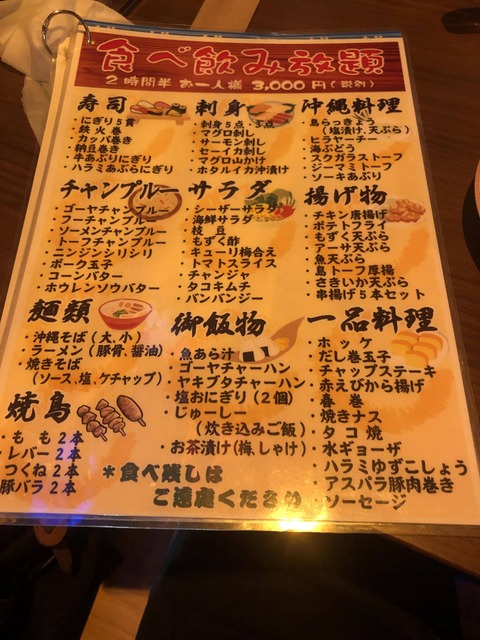 食べ飲み放題
2時間半 お一人様 3,000円(税別)
寿司
・にぎり5貫
・鉄火巻
・カッパ巻き
・納豆巻き
・牛あぶりにぎり
・ハラミあぶらにぎり
刺身
・刺身5点・3点
・マグロ刺し
・サーモン刺し
・セーイカ刺し
・マグロ山かけ
・ホタルイカ沖漬け
沖縄料理
・島らっきょう
(塩漬け、天ぷら)
・ヒラヤーチー
・海ぶどう
・スクガラストーフ
・ジーマミトーフ
・ソーキあぶり
チャンプルー
・ゴーヤチャンプルー
・フーチャンプルー
・ソーメンチャンプルー
・トーフチャンプルー
・ニンジンシリシリ
・ポーク玉子
・コーンバター
・ホウレンソウバター
サラダ
・シーザーサラダ
・海鮮サラダ
・枝豆
・もずく酢
・キューリ梅合え
・トマトスライス
・チャンジャ
・タコキムチ
・バンバンジー
揚げ物
・チキン唐揚げ
・ポテトフライ
・もずく天ぷら
・アーサ天ぷら
・魚天ぷら
・島トーフ厚揚
・さきいか天ぷら
・串揚げ5本セット
麺類
・沖縄そば(大、小)
・ラーメン(豚骨、醤油)
・焼きそば
(ソース、塩、ケチャップ)
焼鳥
・もも2本
・レバー2本
・つくね2本
豚バラ2本
御飯物
・魚あら汁
・ゴーヤチャーハン
・ヤキブタチャーハン
・塩おにぎり(2個)
・じゅーしー
(炊き込みご飯)
・お茶漬け(梅、しゃけ)
一品料理
・ホッケ
・だし巻玉子
・チャップステーキ
・赤えびから揚げ
・春巻
・焼きナス
・タコ焼
・水ギョーザ
・ハラミゆずこしょう
・アスパラ豚肉巻き
・ソーセージ
*食べ残しは
ご遠慮ください